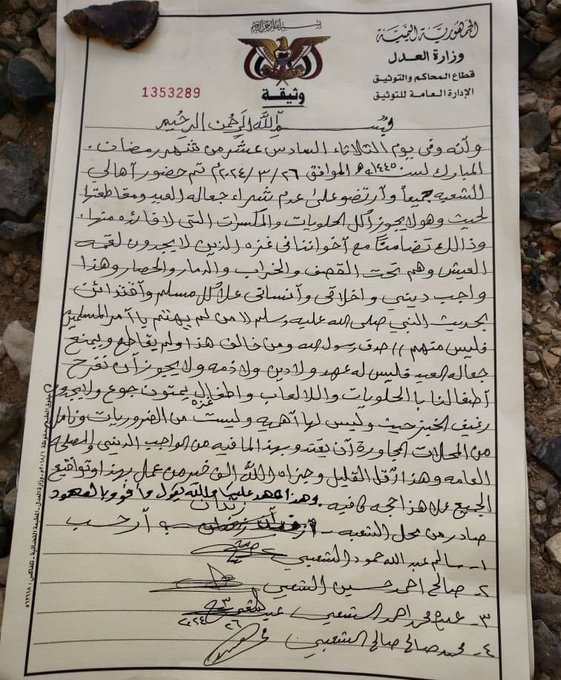 بسم الله الرحمن الرحيم
الجمهورية اليمنية
وزارة العدل
قطاع المحاكم والتوثيق
الإدارة العامة للتوثيق
وثيقة
1353289
بسم الله الرحمن الرحيم
وأنه وفي يوم الثلاثاء السادس عشر من شهر رمضان
المبارك لسنه ١٤٤٥ه الموافق ٢٠٢٤/٣/٢٦م تم حضور أهالي
الشعبه جميعاً وأرتضو على عدم شراء جعاله العيد ومقاطعتها
بحيث وهو لا يجوز أكل الحلويات والمكسرات التي لا فائده منها
وذالك تضامناً مع أخواننا في غزه الذين لا يجدون لقمه
العيش وهم تحت القصف والخراب والدمار والحصار وهذا
واجب ديني واخلاقي وأنساني علا كل مسلم وأقتدائن
بحديث النبي صلى الله عليه وسلم لا من لم يهتم با أمر المسلمين
فليس منهم // صدق رسول الله ومن خالف هذا ولم يقاطع ويمنع
جعاله العيد فليس له عهد ولا دين ولا ذمه ولا يجوز أن نفرح
أطفالنا با الحلويات واللالعاب وأطفال غزه يموتون جوع ولا يجدون
رغيف الخبز حيث وليس لها أهميه وليست من الضروريات ونامل
من المحلات المجاورة أن يقتدو بهذا لما فيه من الواجب الديني والمصلحه
العامه وهذا أقل القليل وجزاه الله الف خير من عمل بهذا وتواقيع
الجميع علا هذا حجه كافيه. وهذا عهد علينا والله يقول وأوفو بالعهود
صادر من محل الشعبه - زندان - أرحب
١- سالم عبدالله حمود الشعبي
٢- صالح احمد حسين الشعبي
٣- محمد احمد الشعبي
٤- محمد صالح صالح الشعبي